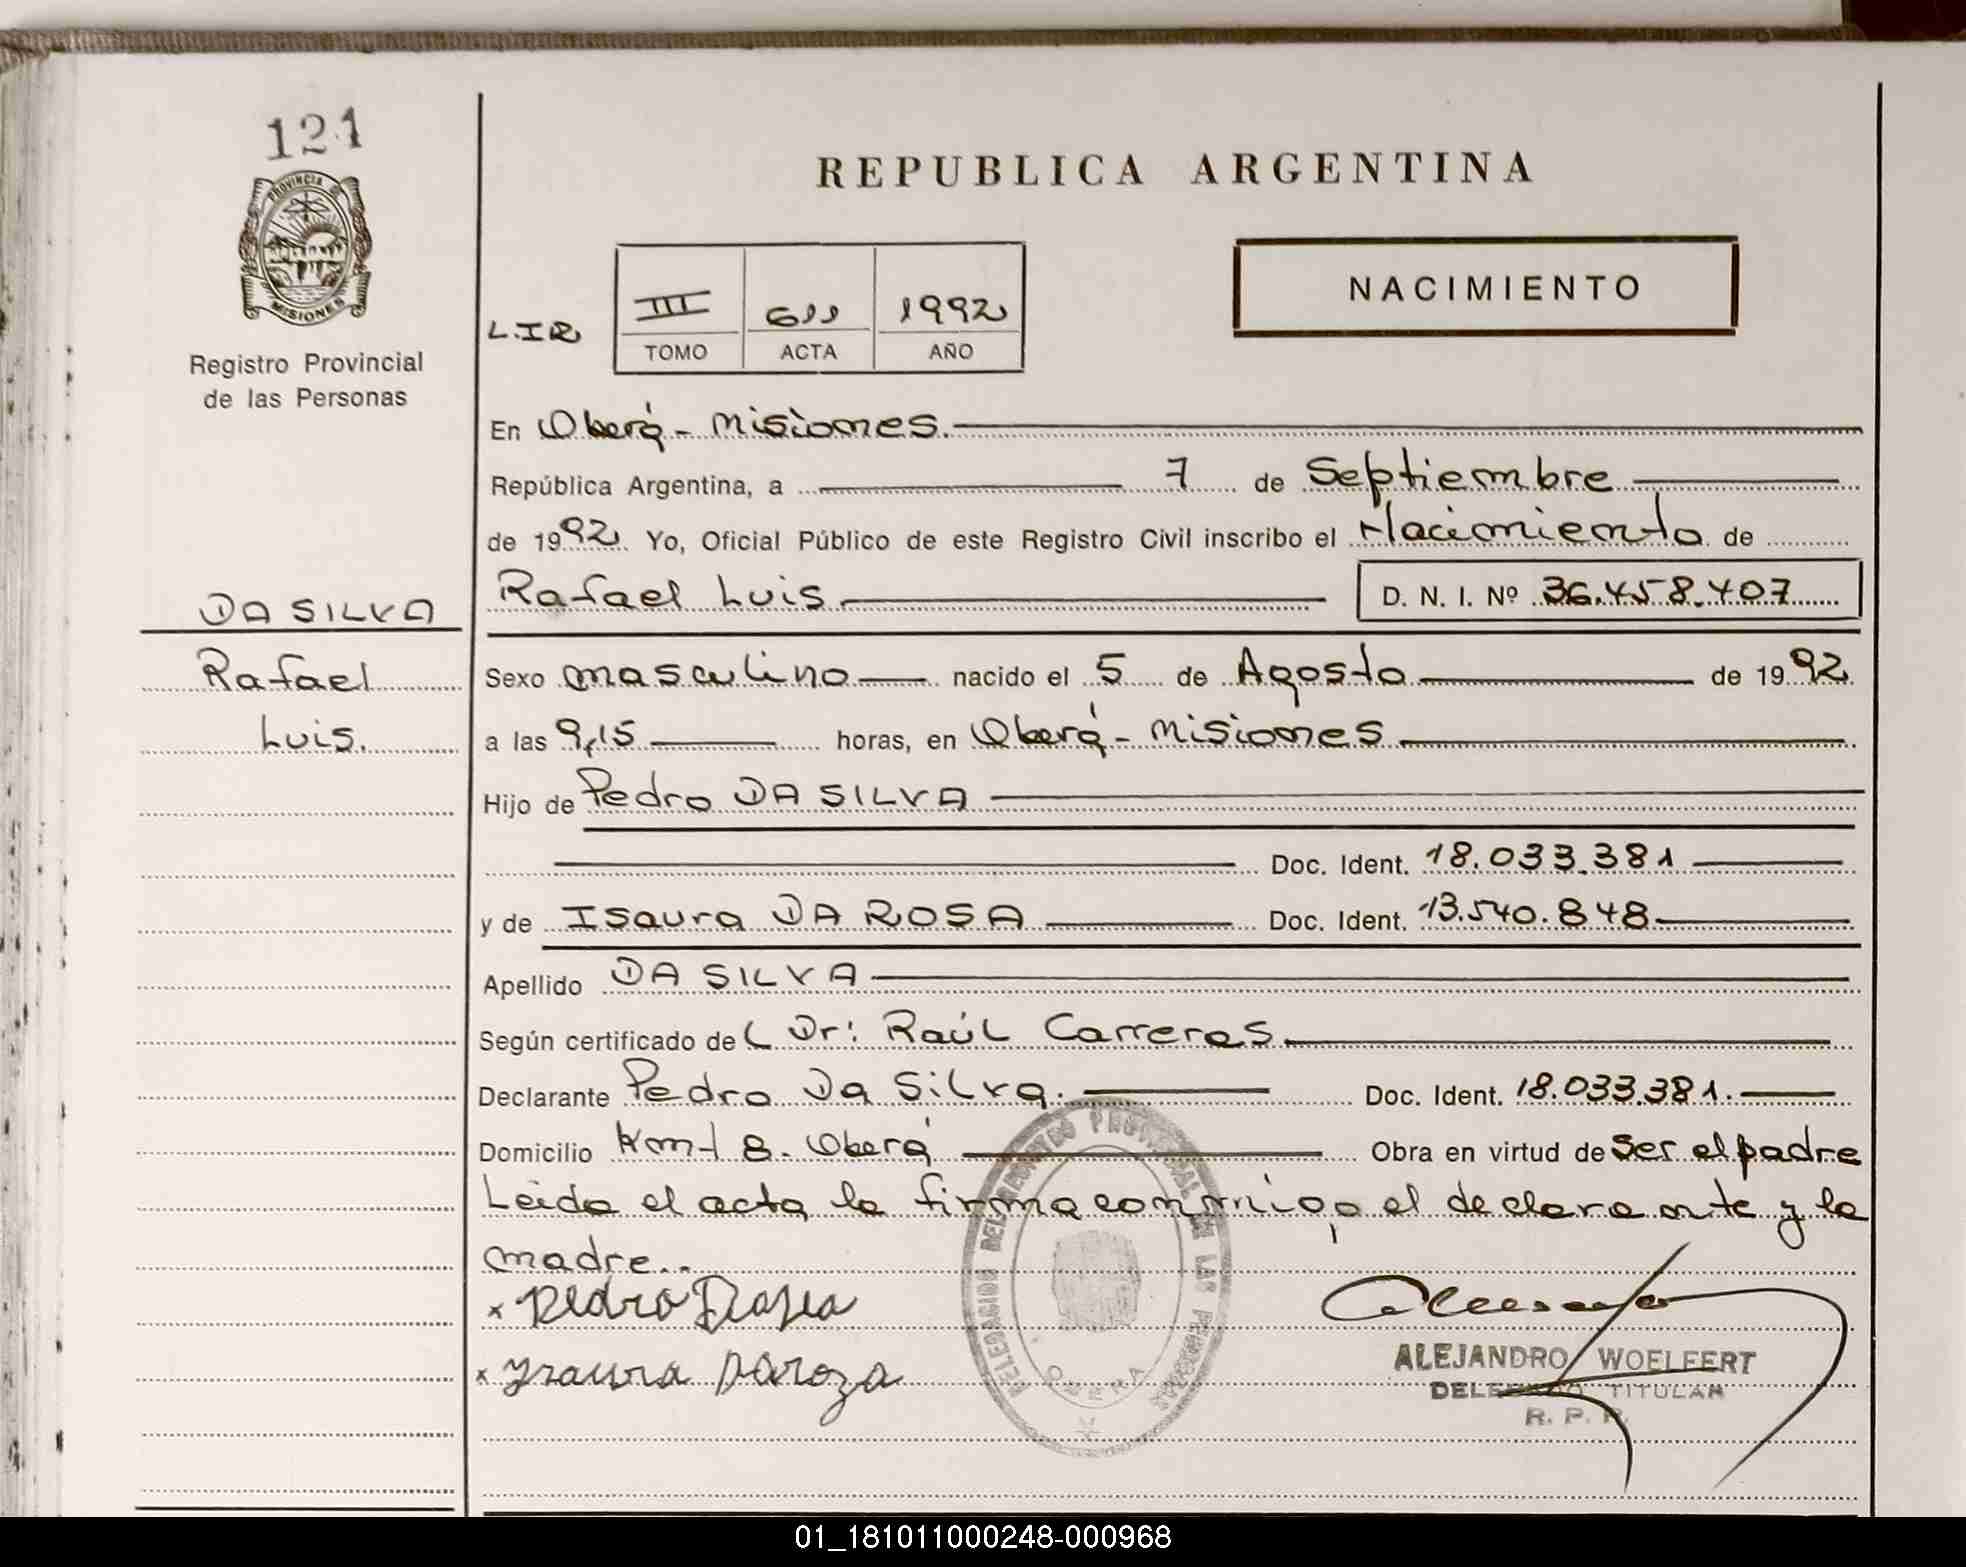 121
PROVINCIA DE
MISIONES
Registro Provincial
de las Personas
DA SILVA
Rafael
Luis.
REPUBLICA ARGENTINA
NACIMIENTO
L.I.R
III 611 1992
TOMO ACTA AÑO
En Oberá - Misiones.
República Argentina, a 7 de Septiembre
de 1992 Yo, Oficial Público de este Registro Civil inscribo el Nacimiento de
Rafael Luis D. N. I. Nº 36.458.407
Sexo masculino nacido el 5 de Agosto de 1992
a las 9,15 horas, en Oberá - Misiones
Hijo de Pedro DA SILVA
Doc. Ident. 18.033.381
y de Isaura DA ROSA Doc. Ident. 13.540.848
Apellido DA SILVA
Según certificado del Dr: Raúl Carreras
Declarante Pedro Da Silva. Doc. Ident. 18.033.381.
Domicilio Km-t 8. Oberá Obra en virtud de ser el padre
Leida el acta la firma conmigo, el declarante y la
madre..
x Pedro Dasila
x Ysaura Daroza
DELEGACION DEL REGISTRO PROVINCIAL DE LAS PERSONAS
OBERA
ALEJANDRO WOELFERT
DELEGADO TITULAR
R. P. P.
01_181011000248-000968